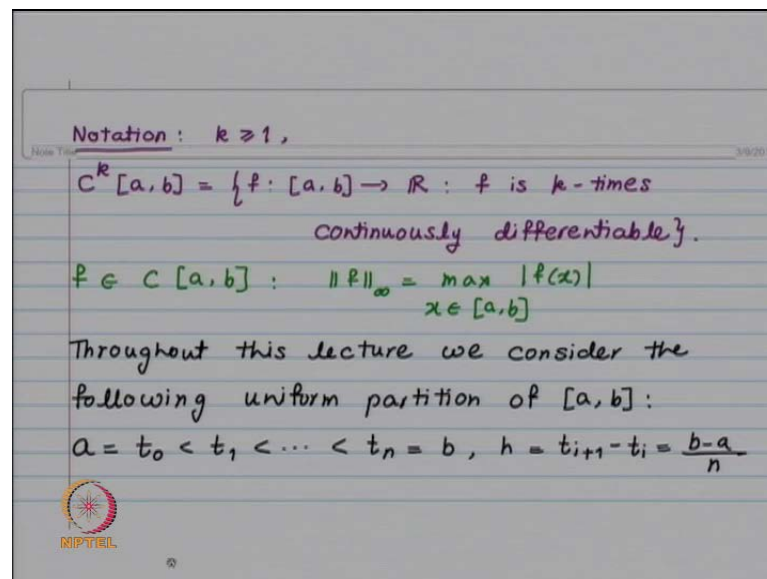 Notation : k ⩾ 1 ,
Note Title
3/9/20
C^k [a, b] = { f : [a, b] → R : f is k - times
continuously differentiable }.
f ∈ C [a, b] : ‖f‖_∞ = max |f(x)|
x ∈ [a, b]
Throughout this lecture we consider the
following uniform partition of [a, b] :
a = t_0 < t_1 < ... < t_n = b , h = t_{i+1} - t_i = \frac{b-a}{n}
NPTEL